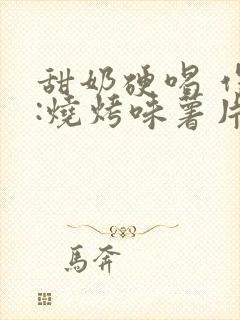 甜奶硬唱
:燒烤味薯片
馬奔